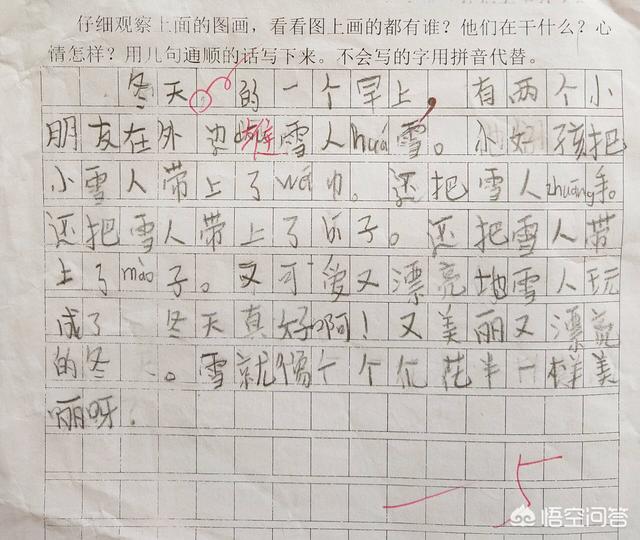 仔细观察上面的图画，看看图上画的都有谁？他们在干什么？心
情怎样？用几句通顺的话写下来。不会写的字用拼音代替。
冬天，的一个早上，有两个小
朋友在外边堆雪人huá雪。小好孩把
小雪人带上了wéi巾。还把雪人zhuāng手。
还把雪人带上了爪子。还把雪人带
上了mào子。又可爱又漂亮地雪人玩
成了 冬天真好啊！又美丽又漂亮
的冬 。雪就像个个化花半一样美
丽呀.
－5
悟空问答